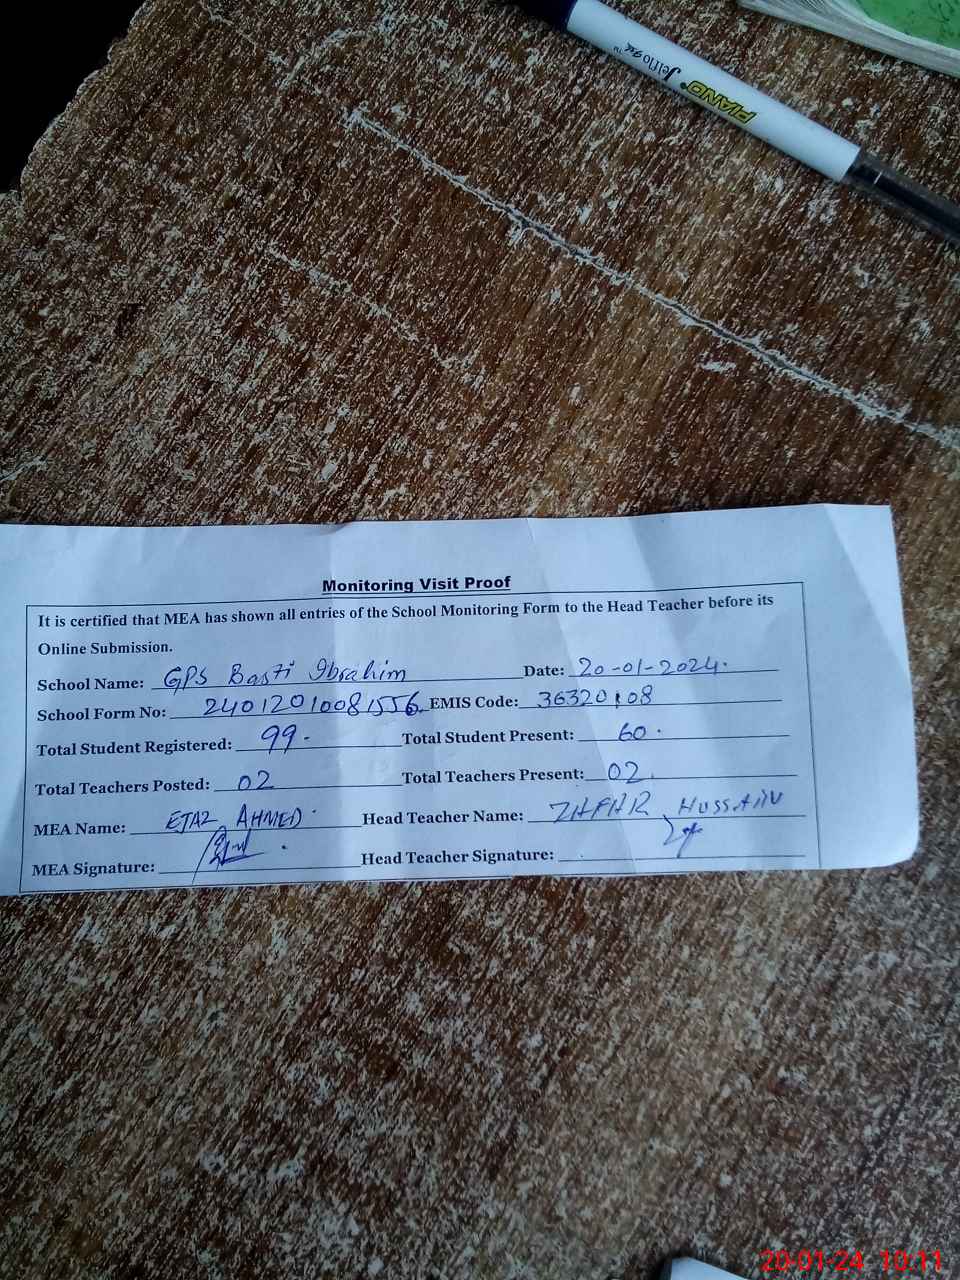 PIANO Jelflo gel ™
Monitoring Visit Proof
It is certified that MEA has shown all entries of the School Monitoring Form to the Head Teacher before its
Online Submission.
School Name: GPS Basti Ibrahim Date: 20-01-2024.
School Form No: 24012010081556 EMIS Code: 36320108
Total Student Registered: 99. Total Student Present: 60.
Total Teachers Posted: 02 Total Teachers Present: 02.
MEA Name: EJAZ AHMED. Head Teacher Name: ZAFAR Hussain
MEA Signature: Head Teacher Signature:
20-01-24 10:11